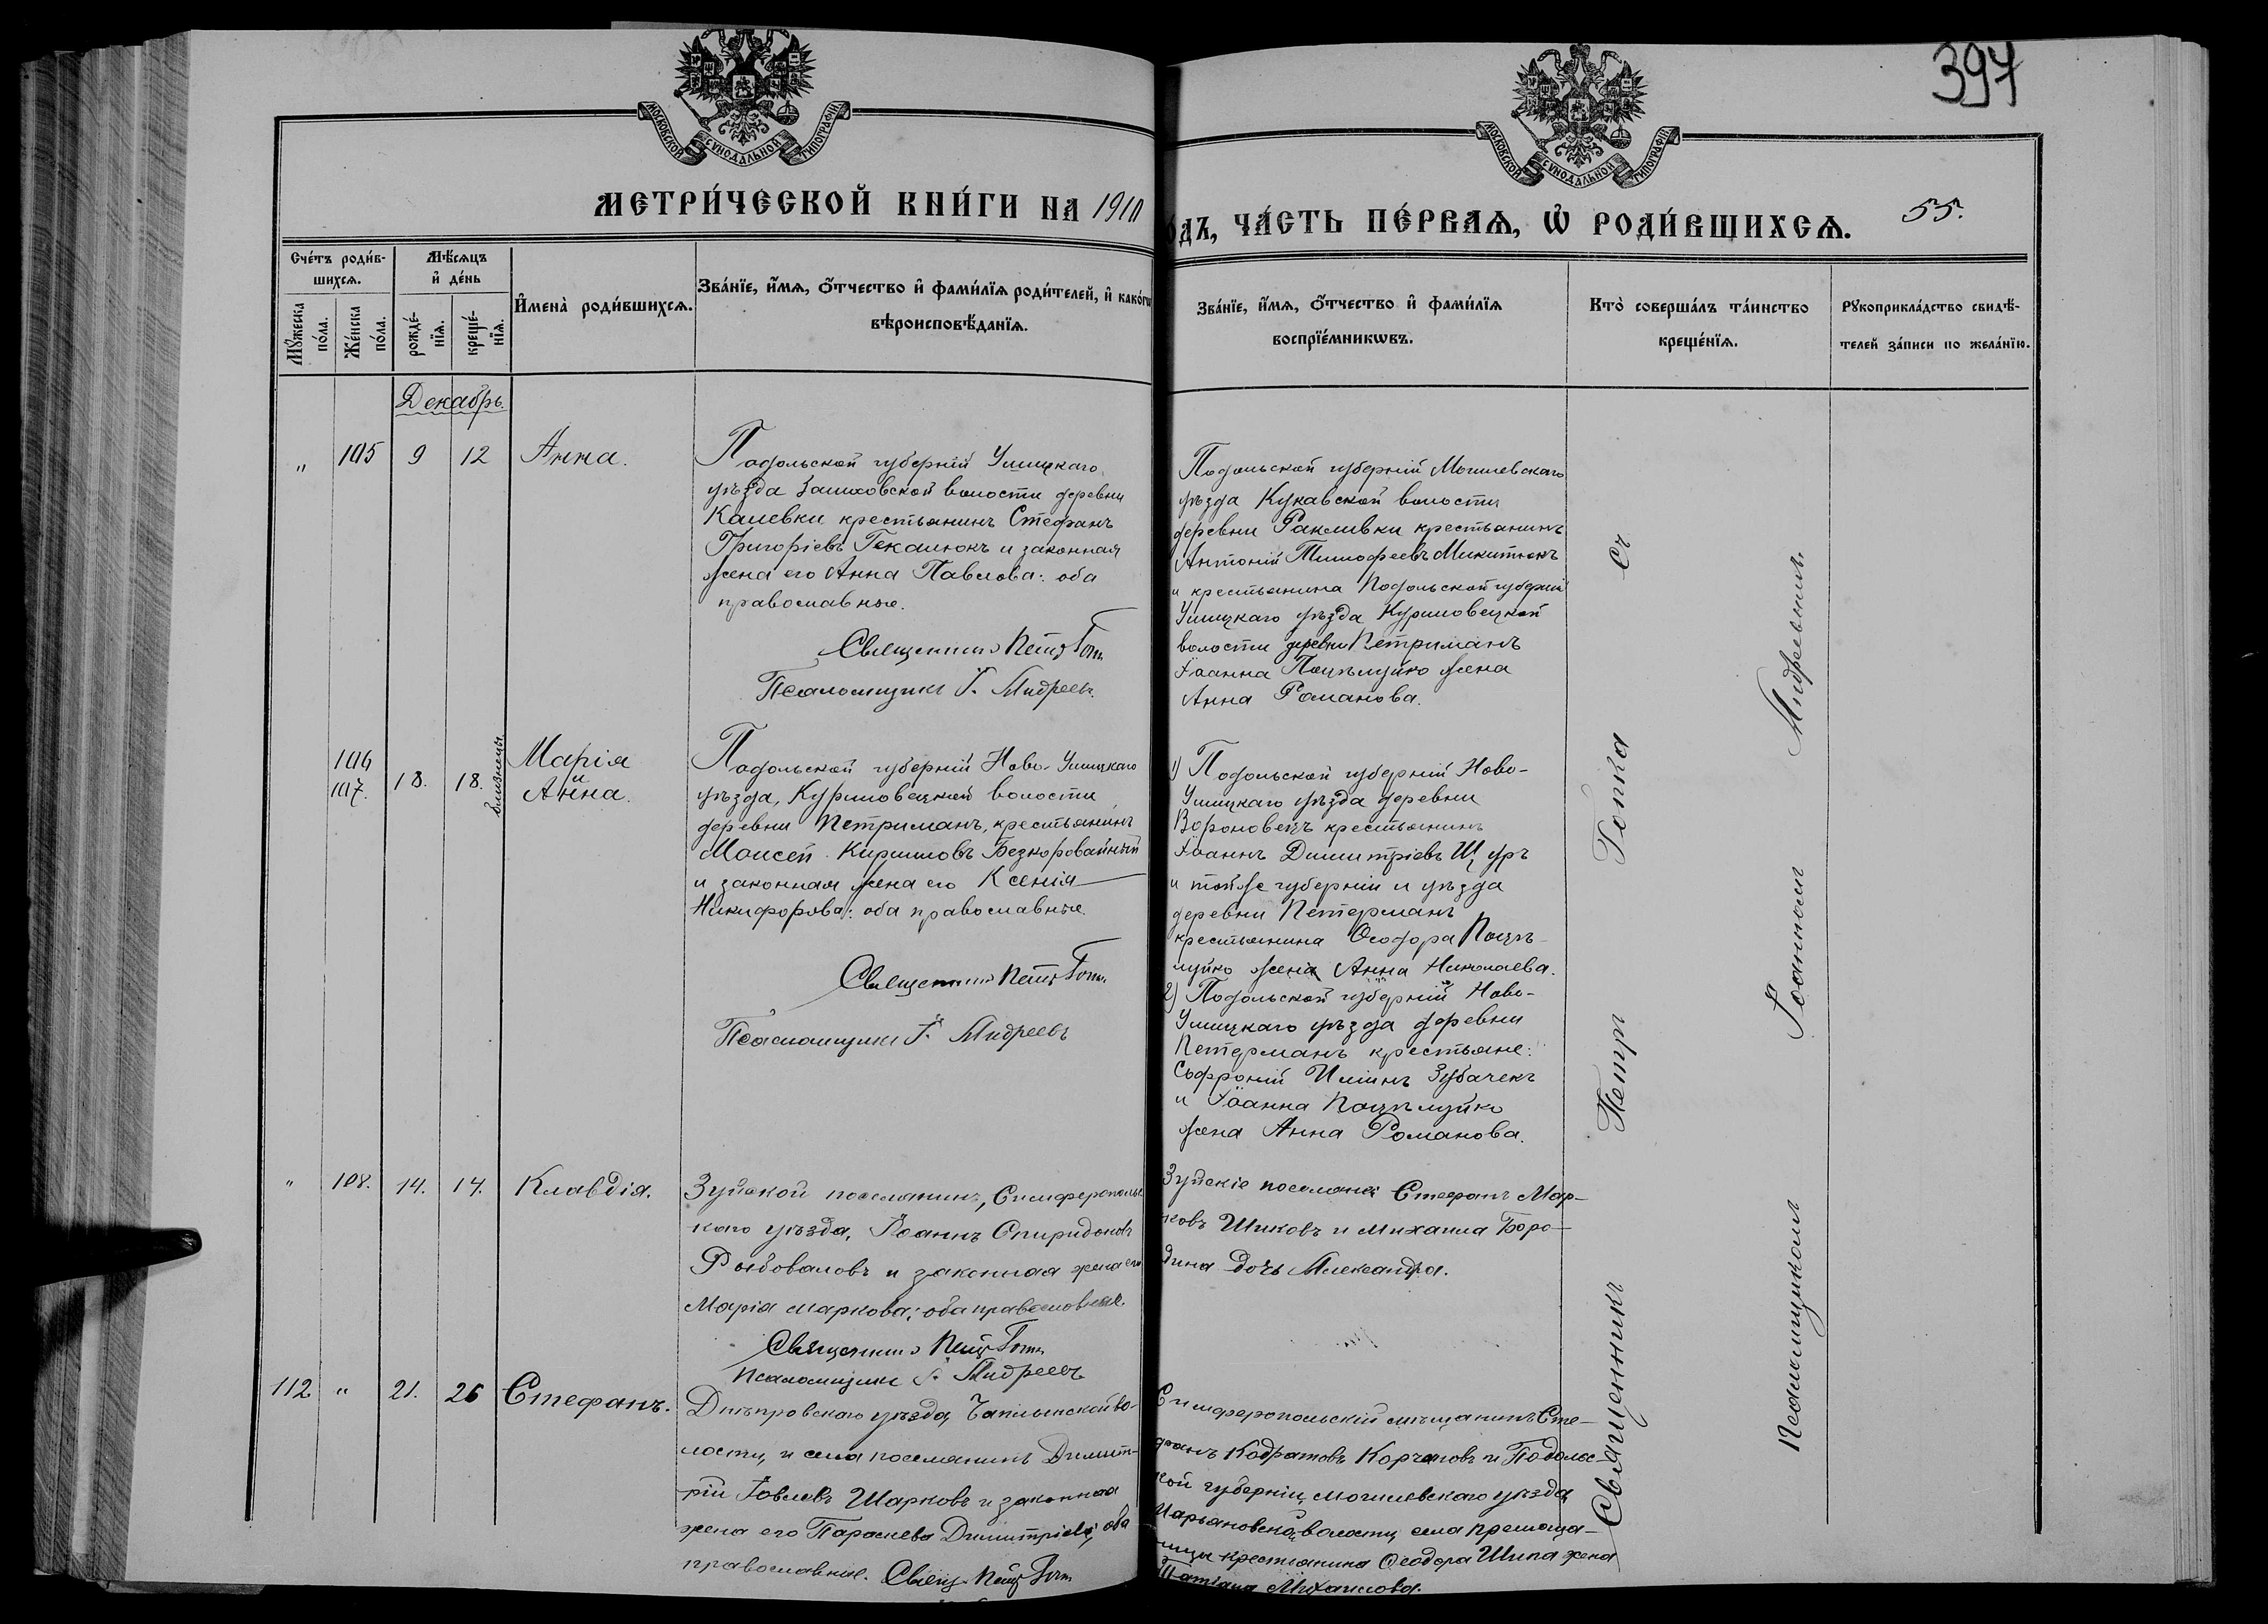 397
МОСКОВСКОЙ СУНОДАЛЬНОЙ ТИПОГРАФІИ
МОСКОВСКОЙ СУНОДАЛЬНОЙ ТИПОГРАФІИ
МЕТРИ́ЧЕСКОЙ КНИ́ГИ НА 1910
О́ДЪ, ЧА́СТЬ ПЕ́РВАѦ, Ѡ҆ РОДИ́ВШИХСѦ. 55.
Сче́тъ роди́в-
шихсѧ.
Мꙋ́жеска по́ла.
Же́нска по́ла.
Мѣ́сѧцъ
и҆ де́нь
рожде́-
нїѧ.
креще́-
нїѧ.
И҆мена̀ роди́вшихсѧ.
Зва́нїе, и҆́мѧ, ѻ҆́тчество и҆ фами́лїѧ роди́телей, и҆ како́гѡ
вѣроисповѣ́данїѧ.
Зва́нїе, и҆́мѧ, ѻ҆́тчество и҆ фами́лїѧ
воспрїе́мникѡвъ.
Кто̀ соверша́лъ та́инство
креще́нїѧ.
Рꙋкоприкла́дство свидѣ́-
телей за́писи по жела́нїю.
Декабрь.
" 105 9 12 Анна.
Подольской губерніи Ушицкаго
уѣзда Замиховской волости деревни
Калевки крестьянинъ Стефанъ
Григоріевъ Гекалюкъ и законная
жена его Анна Павлова: оба
православные.
Священникъ Петръ Гопка
Псаломщикъ І. Андреевъ.
Подольской губерніи Могилевскаго
уѣзда Кукавской волости
деревни Ракливки крестьянинъ
Антоній Тимофеевъ Микитюкъ
и крестьянина Подольской губерніи
Ушицкаго уѣзда Куриловецкой
волости деревни Петриманъ
Іоанна Поцѣлуйко жена
Анна Романова.
106
107. 18. 18. близнецы
Марія
и
Анна.
Подольской губерніи Ново-Ушицкаго
уѣзда, Куриловецкой волости
деревни Петриманъ, крестьянинъ
Моисей Кирилловъ Безкоровайный
и законная жена его Ксенія
Никифорова: оба православные.
Священникъ Петръ Гопка
Псаломщикъ І. Андреевъ
1) Подольской губерніи Ново-
Ушицкаго уѣзда деревни
Вороновецъ крестьянинъ
Іоаннъ Димитріевъ Щуръ
и той же губерніи и уѣзда
деревни Петерманъ
крестьянина Ѳеодора Поцѣ-
луйко жена Анна Николаева.
2) Подольской губерніи Ново-
Ушицкаго уѣзда деревни
Петерманъ крестьяне:
Софроній Иліинъ Зубачекъ
и Іоанна Поцѣлуйко
жена Анна Романова.
" 108. 14. 17. Клавдія.
Зуйской поселянинъ, Симферополь
каго уѣзда, Іоаннъ Спиридоновъ
Рыбоваловъ и законная жена его
Марія Маркова; оба православные.
Священникъ Петръ Гопка
Псаломщикъ І. Андреевъ
Зуйскіе поселяне Стефанъ Мар-
ковъ Шиковъ и Михаила Боро-
дина дочь Александра.
112 " 21. 26 Стефанъ.
Днѣпровскаго уѣзда, Чаплынской во-
лости, и села поселянинъ Димит-
рій Іовлевъ Шарковъ и законная
жена его Параскева Димитріева; оба
православные. Свящ. Петръ Гопка
Симферопольскій мѣщанинъ Сте-
фанъ Кодратовъ Корчаковъ и Подольс-
кой губерніи, могилевскаго уѣзда,
волости, села
крестьянина Ѳеодора Шипа жена
Татіана Михаилова.
Священникъ Петръ Гопка съ
Псаломщикомъ Іоанномъ Андреевымъ.